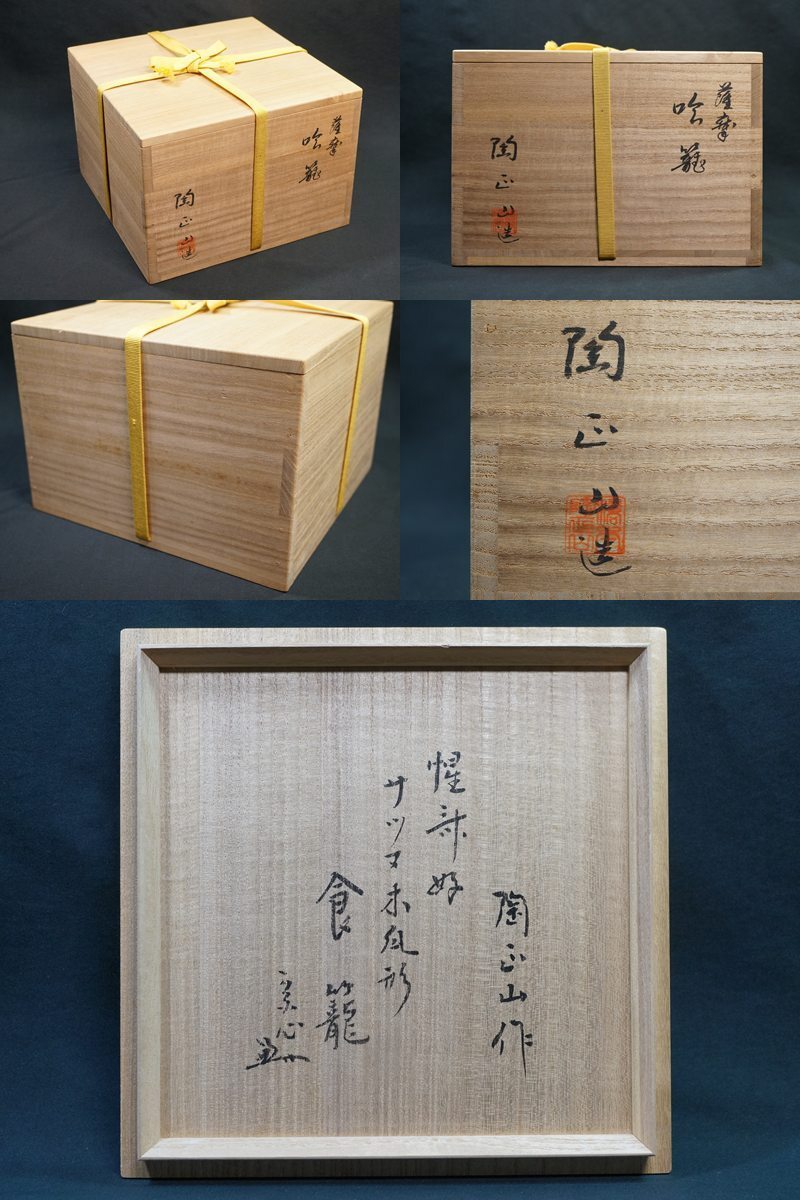 薩摩
籠
陶正山造
薩摩
籠
陶正山造
陶正山造
陶正山作
惺斎好
サツマ木瓜形
食籠